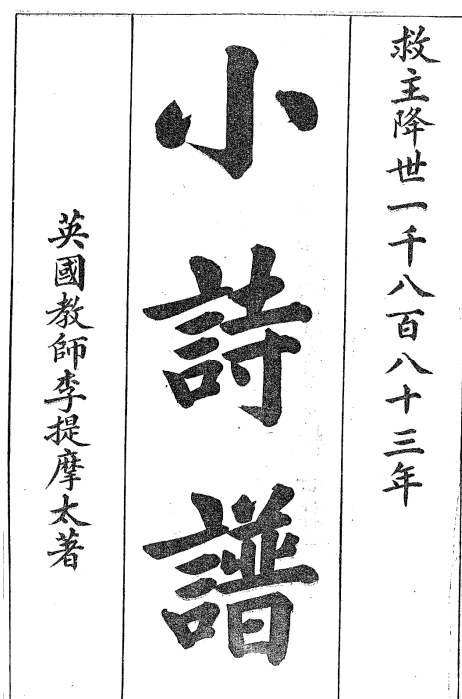 救主降世一千八百八十三年
小詩譜
英國教師李提摩太著